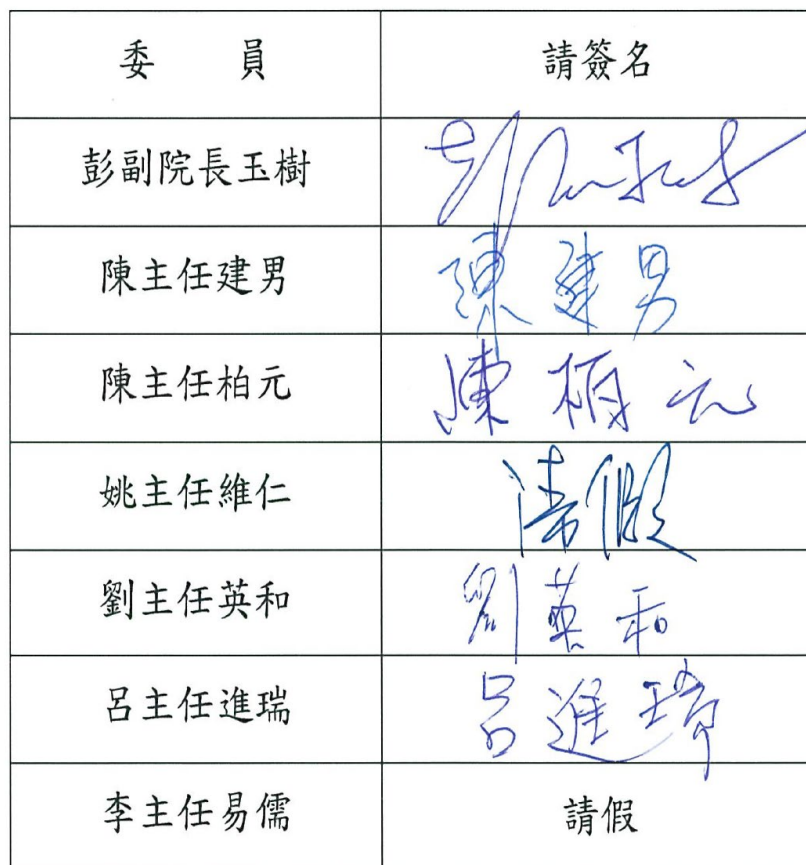 委員 請簽名
彭副院長玉樹 彭玉樹
陳主任建男 陳建男
陳主任柏元 陳柏元
姚主任維仁 請假
劉主任英和 劉英和
呂主任進瑞 呂進瑞
李主任易儒 請假